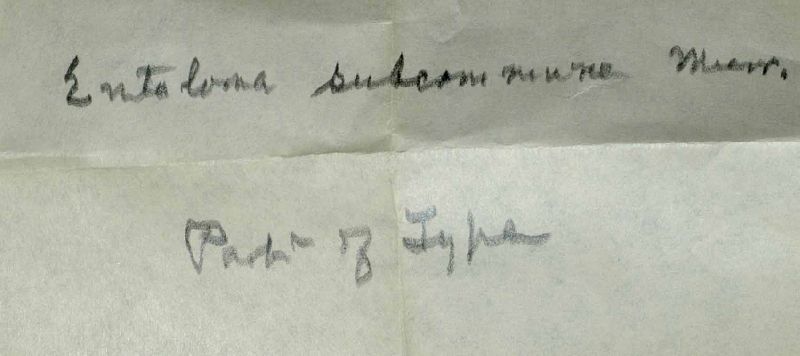 Entoloma subcommune Murr.
Part of Type